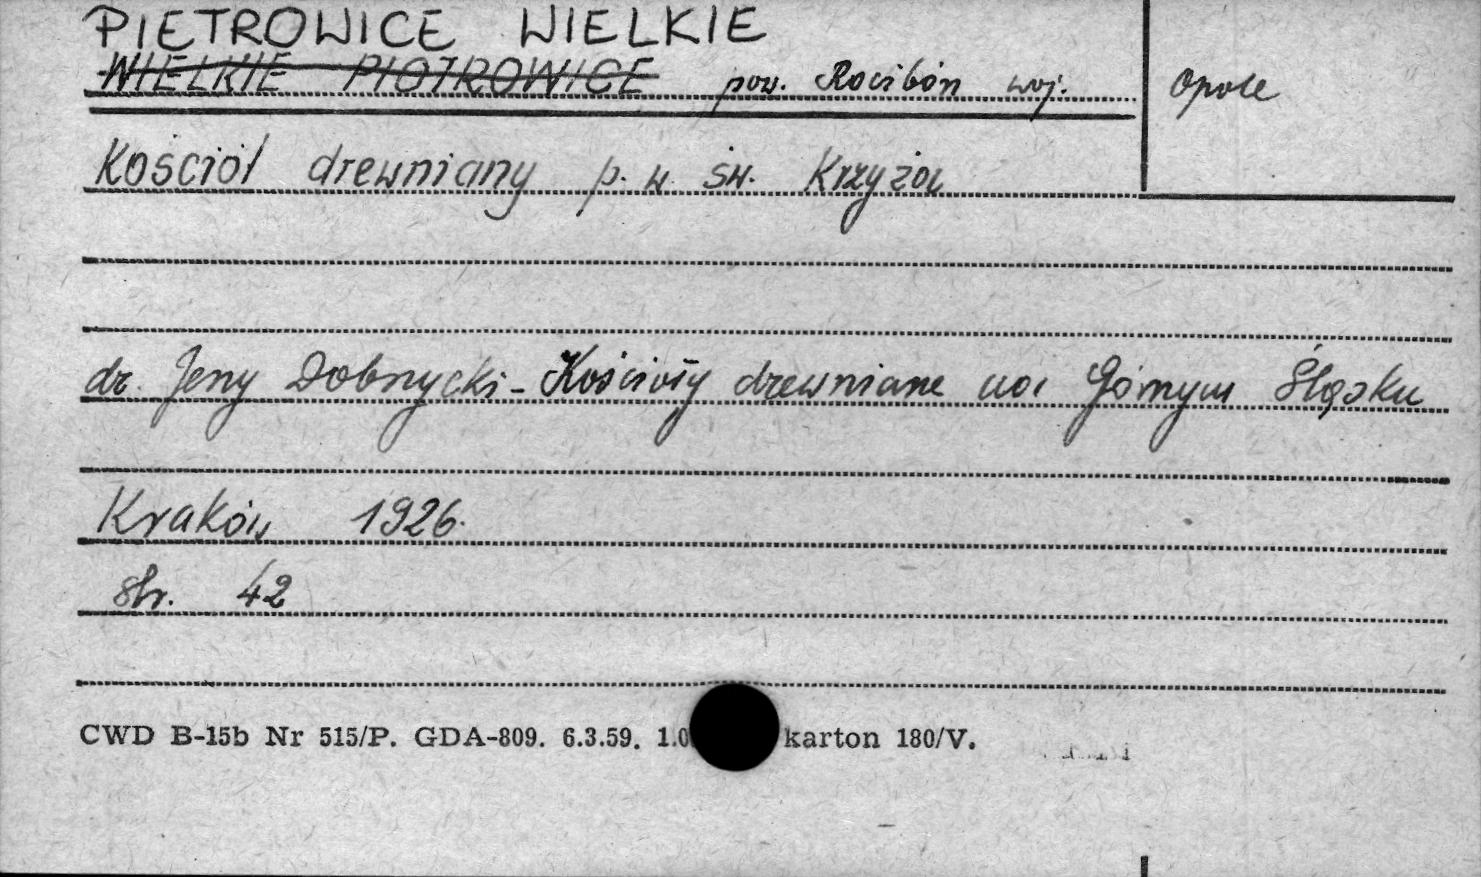 PIETROWICE WIELKIE
WIELKIE PIOTROWICE pow. Racibórz woj. Opole
Kościół drewniany p. w. św. Krzyża
dr. Jerzy Dobrzycki - Kościoły drewniane na Górnym Śląsku
Kraków 1926.
str. 42
CWD B-15b Nr 515/P. GDA-809. 6.3.59. 1.0 karton 180/V.